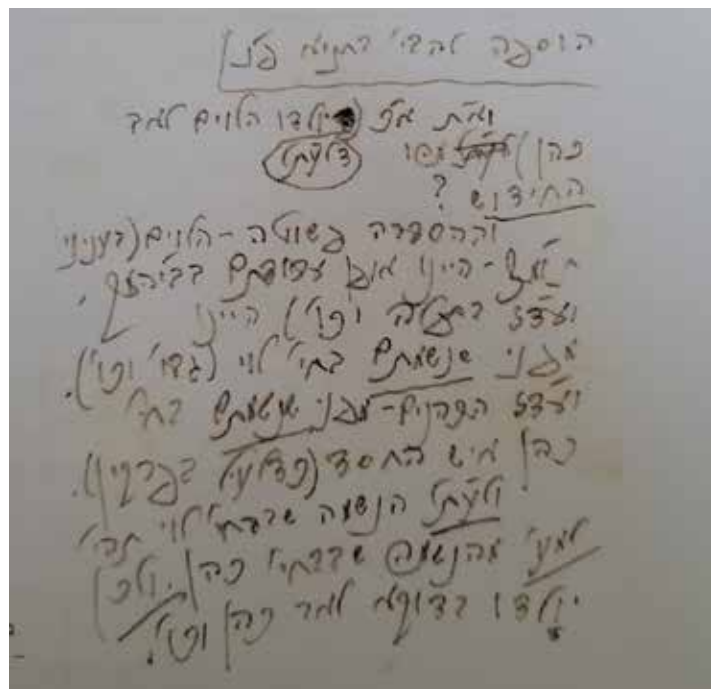 הוספה להבי' בתניא פ"נ
וא"ת אפ' יולדו הלוים לאב
כהן
דלעת"ל
החידוש?
וההסברה פשוטה - הלוים (בעניני
היינו אופן עבודתם בביהמ"ק,
ועד"ז וכו') היינו
מפני שנשמתם בחי' לוי (גבו' וכו').
ועד"ז הכהנים - מפני שנשמתם בחי'
כהן איש החסד (כדלעיל בפרקין).
ולעת"ל הנשמה שבבחי' לוי תהי'
למע' מהנשמה שבבחי' כהן. ולכן
יולדו בדוקא לאב כהן וכו'.